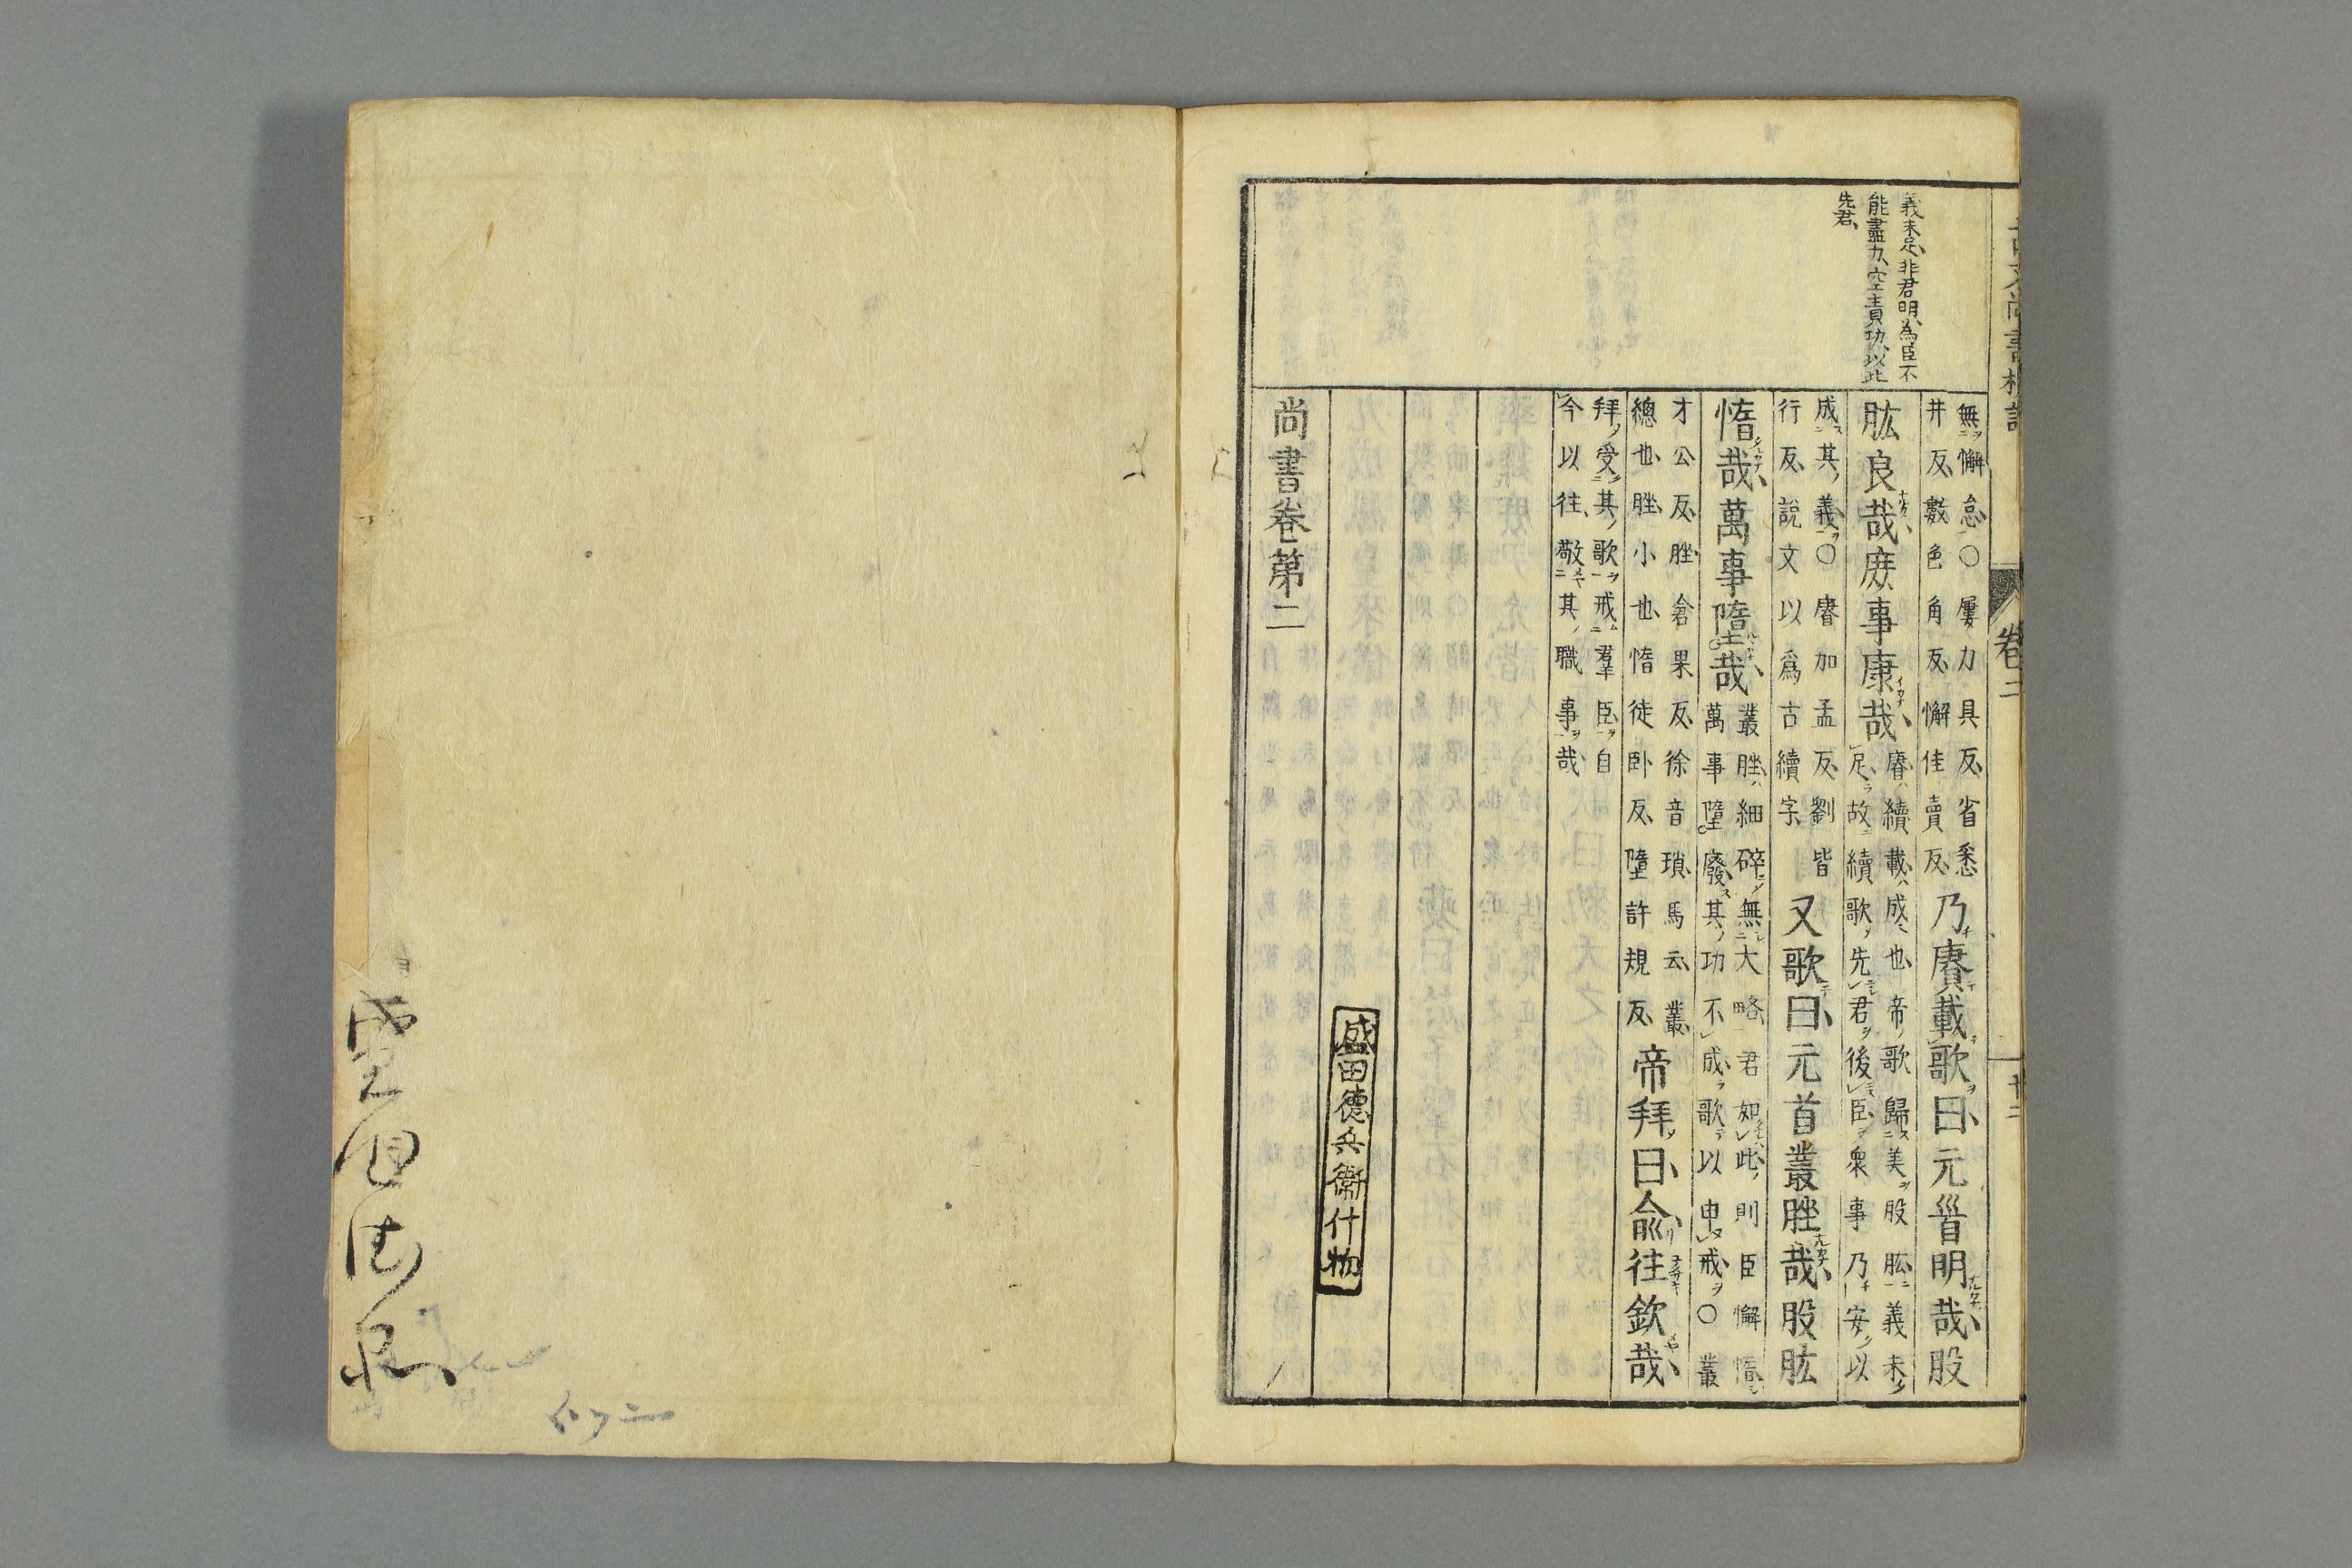 義未足、非君明、為臣不
能盡力、空責功、以此
先君、
無懈怠〇屢力具反、省悉
井反、數色角反、懈佳賣反、
乃賡載歌曰、元首明哉、股
肱良哉、庶事康哉、
賡、續、載、成也、帝歌歸美股肱、義未
足、故續歌、先君後臣、衆事乃安、以
成其義、〇賡加孟反、劉皆
行反、說文以爲古續字、
又歌曰、元首叢脞哉、股肱
惰哉、萬事墮哉、
叢脞、細碎無大略、君如此、則臣懈惰、
萬事墮廢、其功不成、歌以申戒、〇叢
才公反、脞倉果反、徐音瑣、馬云、叢、
總也、脞、小也、惰徒卧反、墮許規反、
帝拜曰、俞、往欽哉、
拜受其歌、戒羣臣、自
今以往、敬其職事哉、
尚書卷第二
盛田德兵衞什物
卷二
廿二